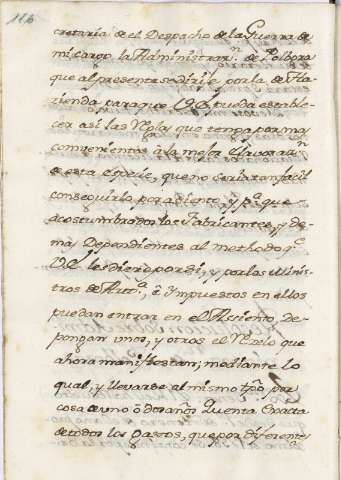 116
cretaria de el Despacho de la Guerra de
mi cargo la Administraz.n de Polbora
que al presente se dirije por la de Ha-
zienda para que V.E. pueda estable-
cer asi las Reglas que tenga por mas
combenientes à la mejor elavoraz.n
de esta especie, que no seria tan facil
conseguirlo por asiento, y p.a que
acostumbrados los Fabricantes, y de-
mas Dependientes al methodo q.e
V.E. les diere por si, y por los Minis-
tros de Art.a, è Ympuestos en ellos
puedan entrar en el Assiento de-
pongan unos, y otros el Rezelo que
ahora manifiestan; mediante lo
qual, y llevarse al mismo tpô por
cosa de uno ò dos años Quenta exacta
de todos los gastos, que por diferente